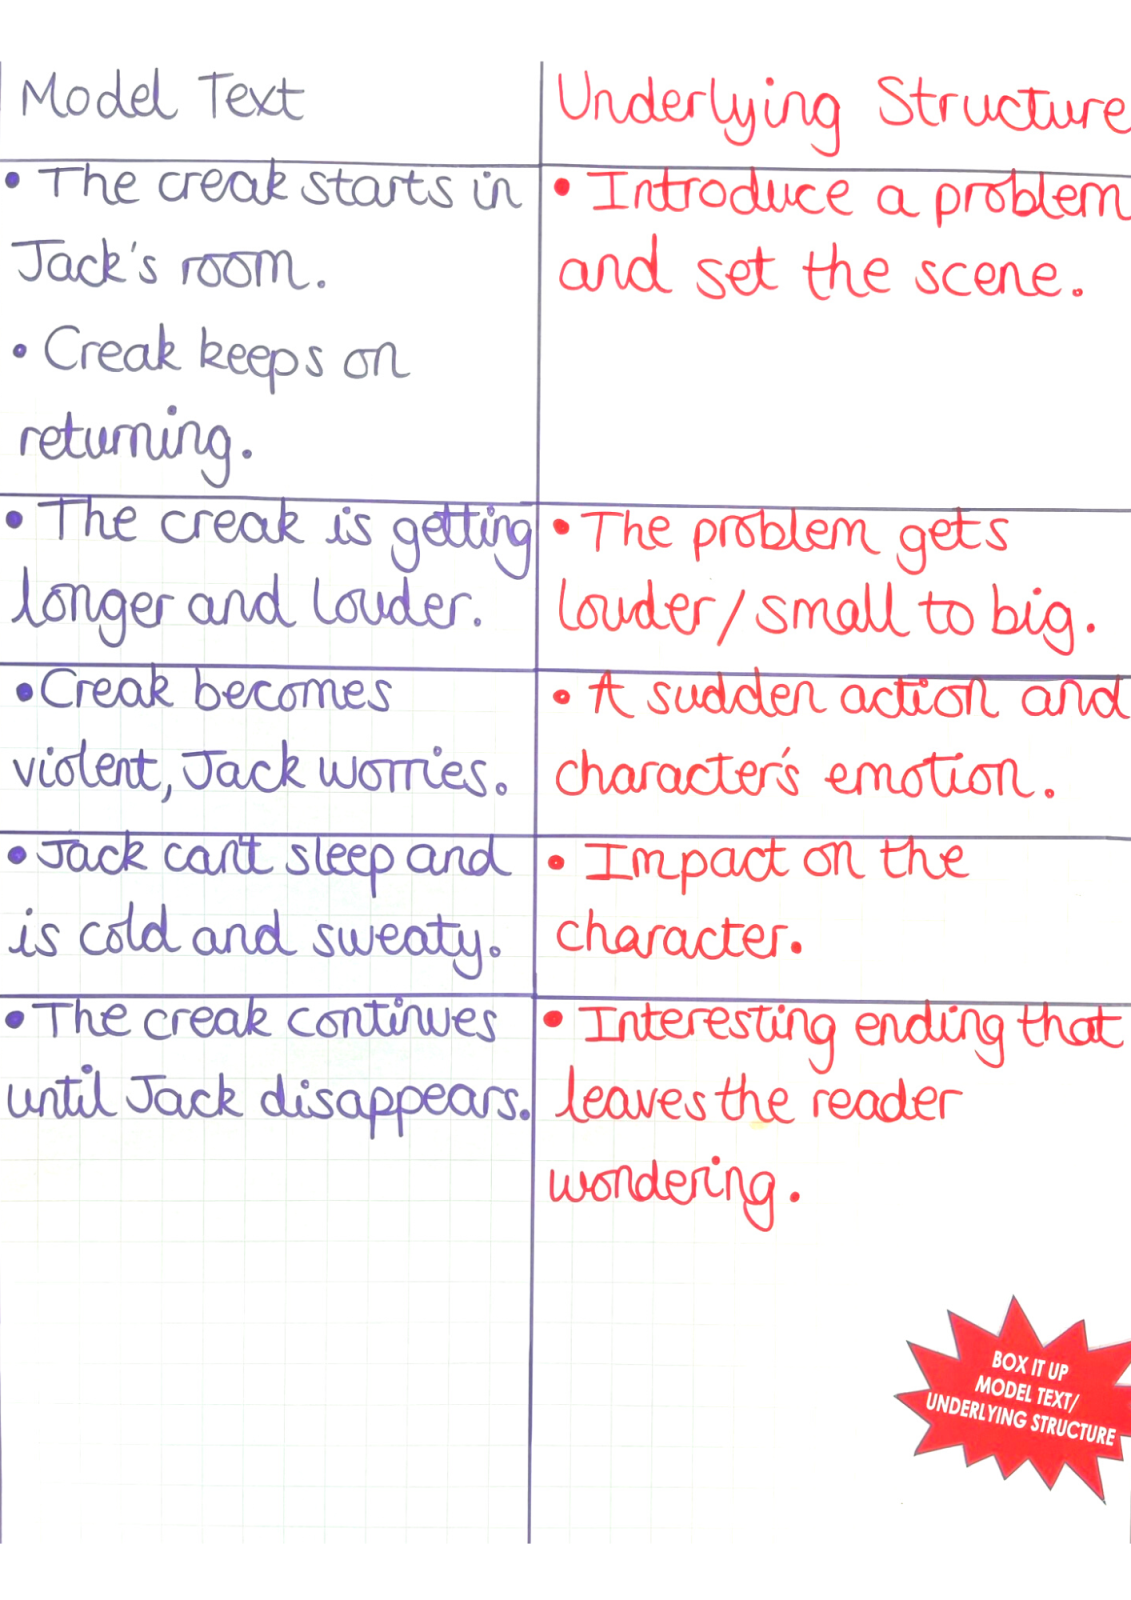 Model Text
Underlying Structure
• The creak starts in
Jack's room.
• Creak keeps on
returning.
• Introduce a problem
and set the scene.
• The creak is getting
longer and louder.
• The problem gets
louder/small to big.
• Creak becomes
violent, Jack worries.
• A sudden action and
character's emotion.
• Jack can't sleep and
is cold and sweaty.
• Impact on the
character.
• The creak continues
until Jack disappears.
• Interesting ending that
leaves the reader
wondering.
BOX IT UP
MODEL TEXT/
UNDERLYING STRUCTURE